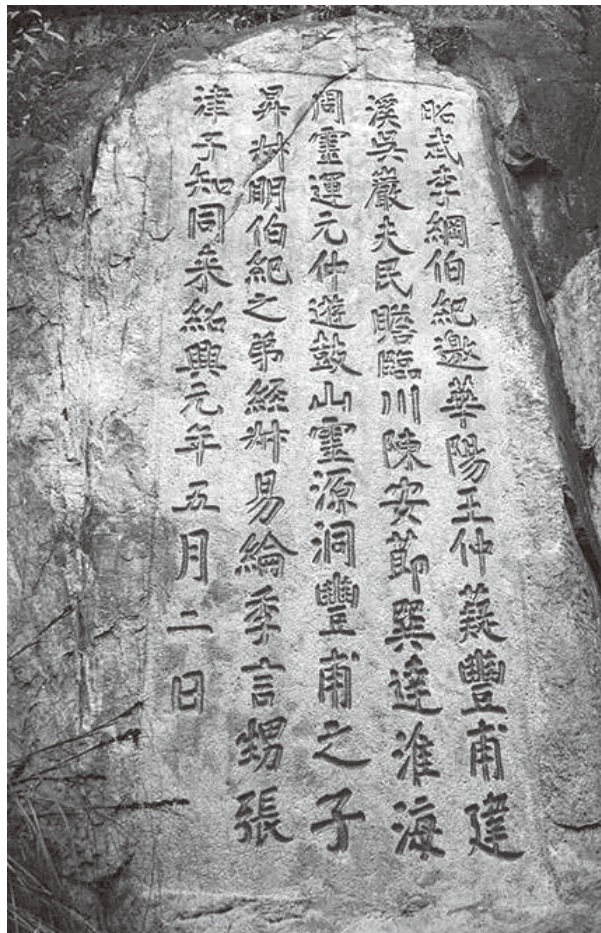 昭武李綱伯紀邀華陽王仲薿豐甫建
溪吳巖夫民瞻臨川陳安節巽達淮海
周靈運元仲遊鼓山靈源洞豐甫之子
昇叔明伯紀之弟經叔易綸季言甥張
津子知同來紹興元年五月二日